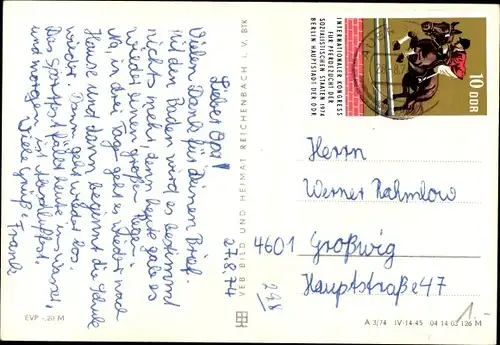 27.8.74
Lieber Opa!
Vielen Dank für Deinen Brief.
Mit dem Baden wird es bestimmt
nichts mehr, denn heute gab es
wieder einen großen Regen.
Na, in drei Tagen geht es wieder nach
Hause und dann beginnt die Schule
wieder. Dann geht wieder los.
Das Sportfest fällt heute ins Wasser,
und morgen ist
Viele Grüße! Frank
VEB BILD UND HEIMAT REICHENBACH I. V. BTK
EVP -,20 M
INTERNATIONALER KONGRESS
FÜR PFERDEZUCHT DER
SOZIALISTISCHEN STAATEN 1974
BERLIN HAUPTSTADT DER DDR
10 DDR
Herrn
Werner Rahmlow
4601 Großwig
Hauptstraße 47
248
1.-
A 3/74 IV-14-45 04 14 02 126 M